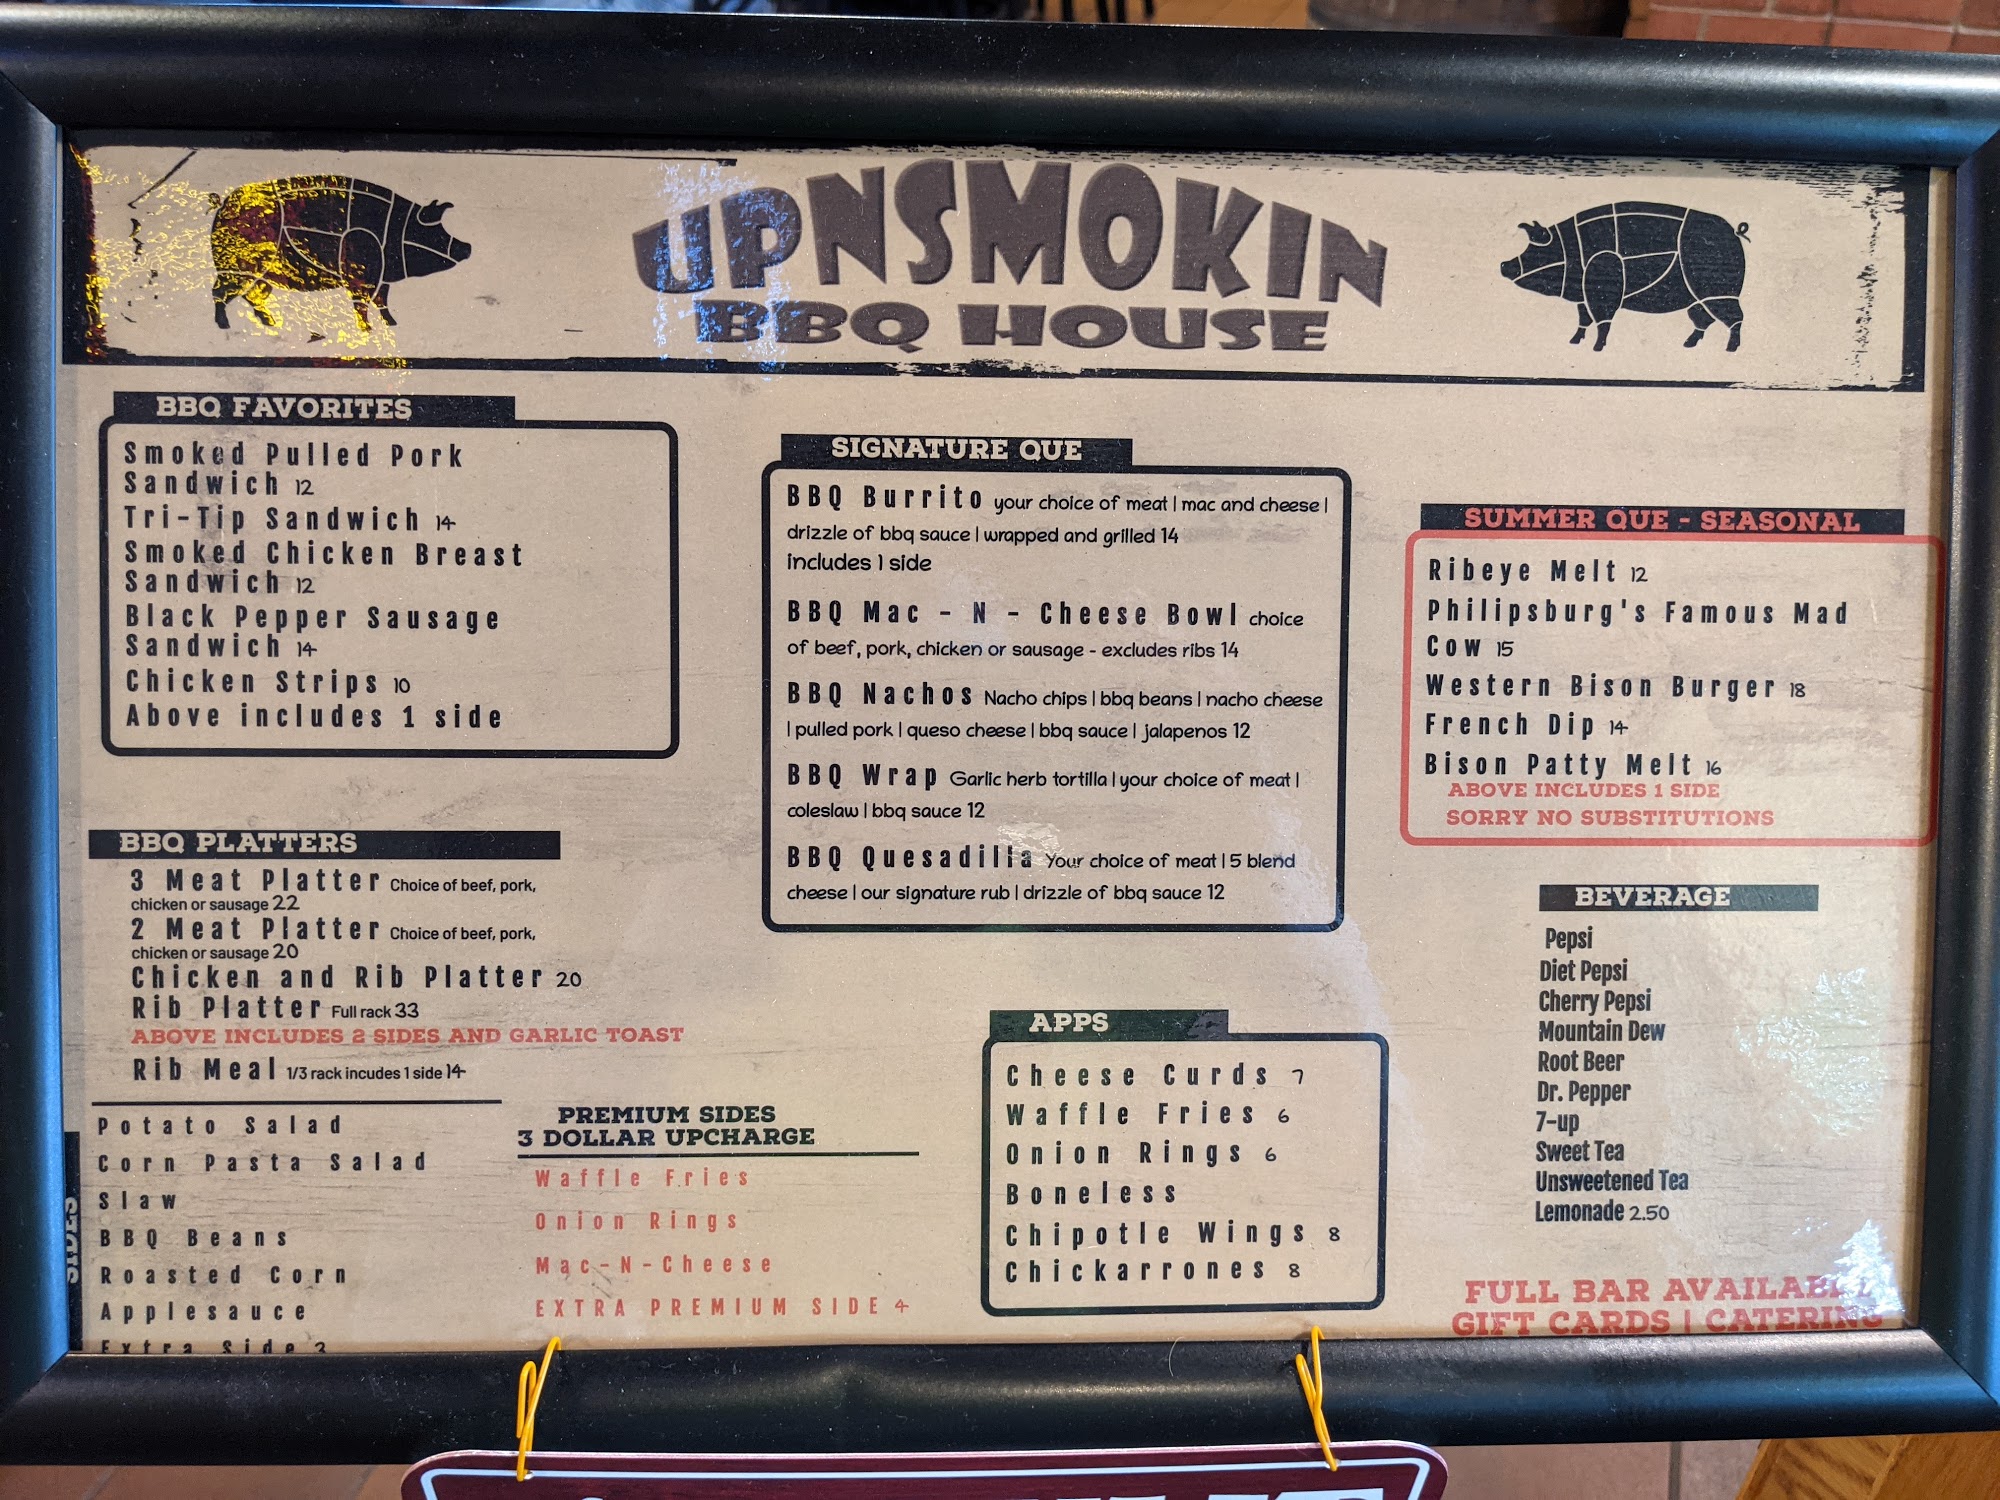 UPNSMOKIN
BBQ HOUSE
BBQ FAVORITES
Smoked Pulled Pork
Sandwich 12
Tri-Tip Sandwich 14
Smoked Chicken Breast
Sandwich 12
Black Pepper Sausage
Sandwich 14
Chicken Strips 10
Above includes 1 side
BBQ PLATTERS
3 Meat Platter Choice of beef, pork,
chicken or sausage 22
2 Meat Platter Choice of beef, pork,
chicken or sausage 20
Chicken and Rib Platter 20
Rib Platter Full rack 33
ABOVE INCLUDES 2 SIDES AND GARLIC TOAST
Rib Meal 1/3 rack incudes 1 side 14
SIDES
Potato Salad
Corn Pasta Salad
Slaw
BBQ Beans
Roasted Corn
Applesauce
Extra Side 3
PREMIUM SIDES
3 DOLLAR UPCHARGE
Waffle Fries
Onion Rings
Mac-N-Cheese
EXTRA PREMIUM SIDE 4
SIGNATURE QUE
BBQ Burrito your choice of meat | mac and cheese |
drizzle of bbq sauce | wrapped and grilled 14
includes 1 side
BBQ Mac - N - Cheese Bowl choice
of beef, pork, chicken or sausage - excludes ribs 14
BBQ Nachos Nacho chips | bbq beans | nacho cheese
| pulled pork | queso cheese | bbq sauce | jalapenos 12
BBQ Wrap Garlic herb tortilla | your choice of meat |
coleslaw | bbq sauce 12
BBQ Quesadilla Your choice of meat | 5 blend
cheese | our signature rub | drizzle of bbq sauce 12
APPS
Cheese Curds 7
Waffle Fries 6
Onion Rings 6
Boneless
Chipotle Wings 8
Chickarrones 8
SUMMER QUE - SEASONAL
Ribeye Melt 12
Philipsburg's Famous Mad
Cow 15
Western Bison Burger 18
French Dip 14
Bison Patty Melt 16
ABOVE INCLUDES 1 SIDE
SORRY NO SUBSTITUTIONS
BEVERAGE
Pepsi
Diet Pepsi
Cherry Pepsi
Mountain Dew
Root Beer
Dr. Pepper
7-up
Sweet Tea
Unsweetened Tea
Lemonade 2.50
FULL BAR AVAILABLE
GIFT CARDS | CATERING